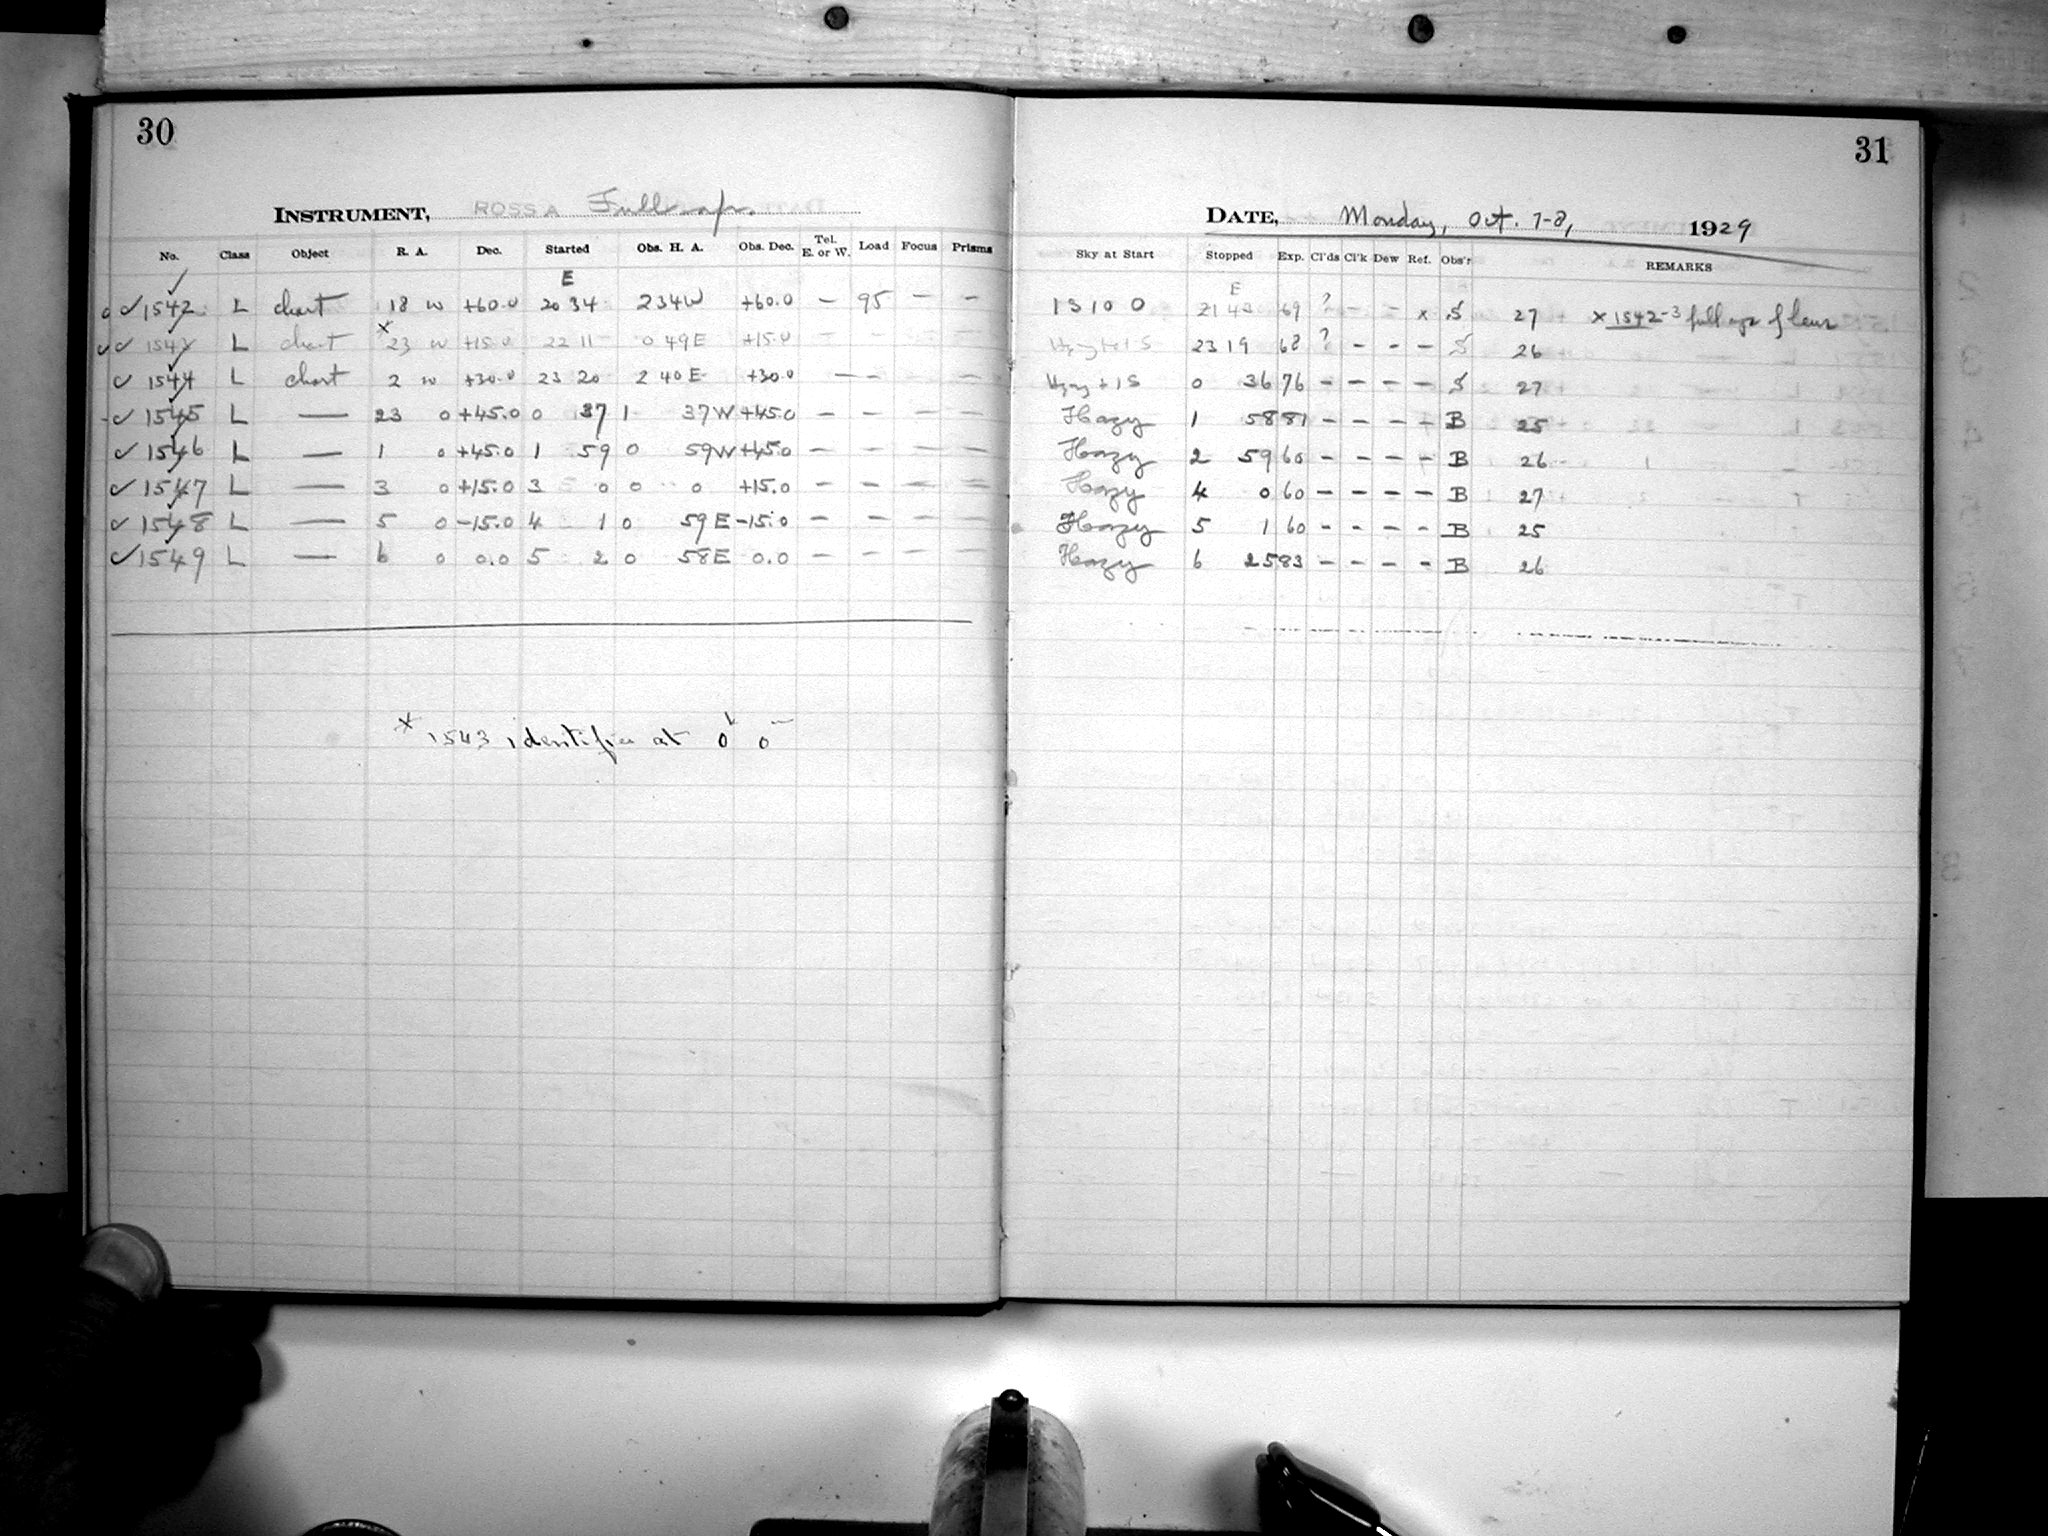 30
INSTRUMENT, ROSS A Full ap.
No. Class Object R. A. Dec. Started Obs. H. A. Obs. Dec. Tel. E. or W. Load Focus Prisms
E
1542 L chart 18 w +60.0 20 34 2 34 W +60.0 — 95 — —
1543 L chart * 23 w +15.0 22 11 0 49 E +15.0 — — — —
1544 L chart 2 w +30.0 23 20 2 40 E +30.0 — —
1545 L — 23 0 +45.0 0 37 1 37 W +45.0 — — — —
1546 L — 1 0 +45.0 1 59 0 59 W +45.0 — — — —
1547 L — 3 0 +15.0 3 0 0 0 +15.0 — — — —
1548 L — 5 0 -15.0 4 1 0 59 E -15.0 — — — —
1549 L — 6 0 0.0 5 2 0 58 E 0.0 — — — —
* 1543 identifies at 0h 0m
31
DATE, Monday, Oct. 7-8, 1929
Sky at Start Stopped Exp. Cl'ds Cl'k Dew Ref. Obs'r REMARKS
E
1 S 10 0 21 43 69 ? — — x S 27 x 1542-3 full ap of lens
Hazy to 1 S 23 19 68 ? — — — S 26
Hazy + 1 S 0 36 76 — — — — S 27
Hazy 1 58 81 — — — — B 25
Hazy 2 59 60 — — — — B 26
Hazy 4 0 60 — — — — B 27
Hazy 5 1 60 — — — — B 25
Hazy 6 25 83 — — — — B 26